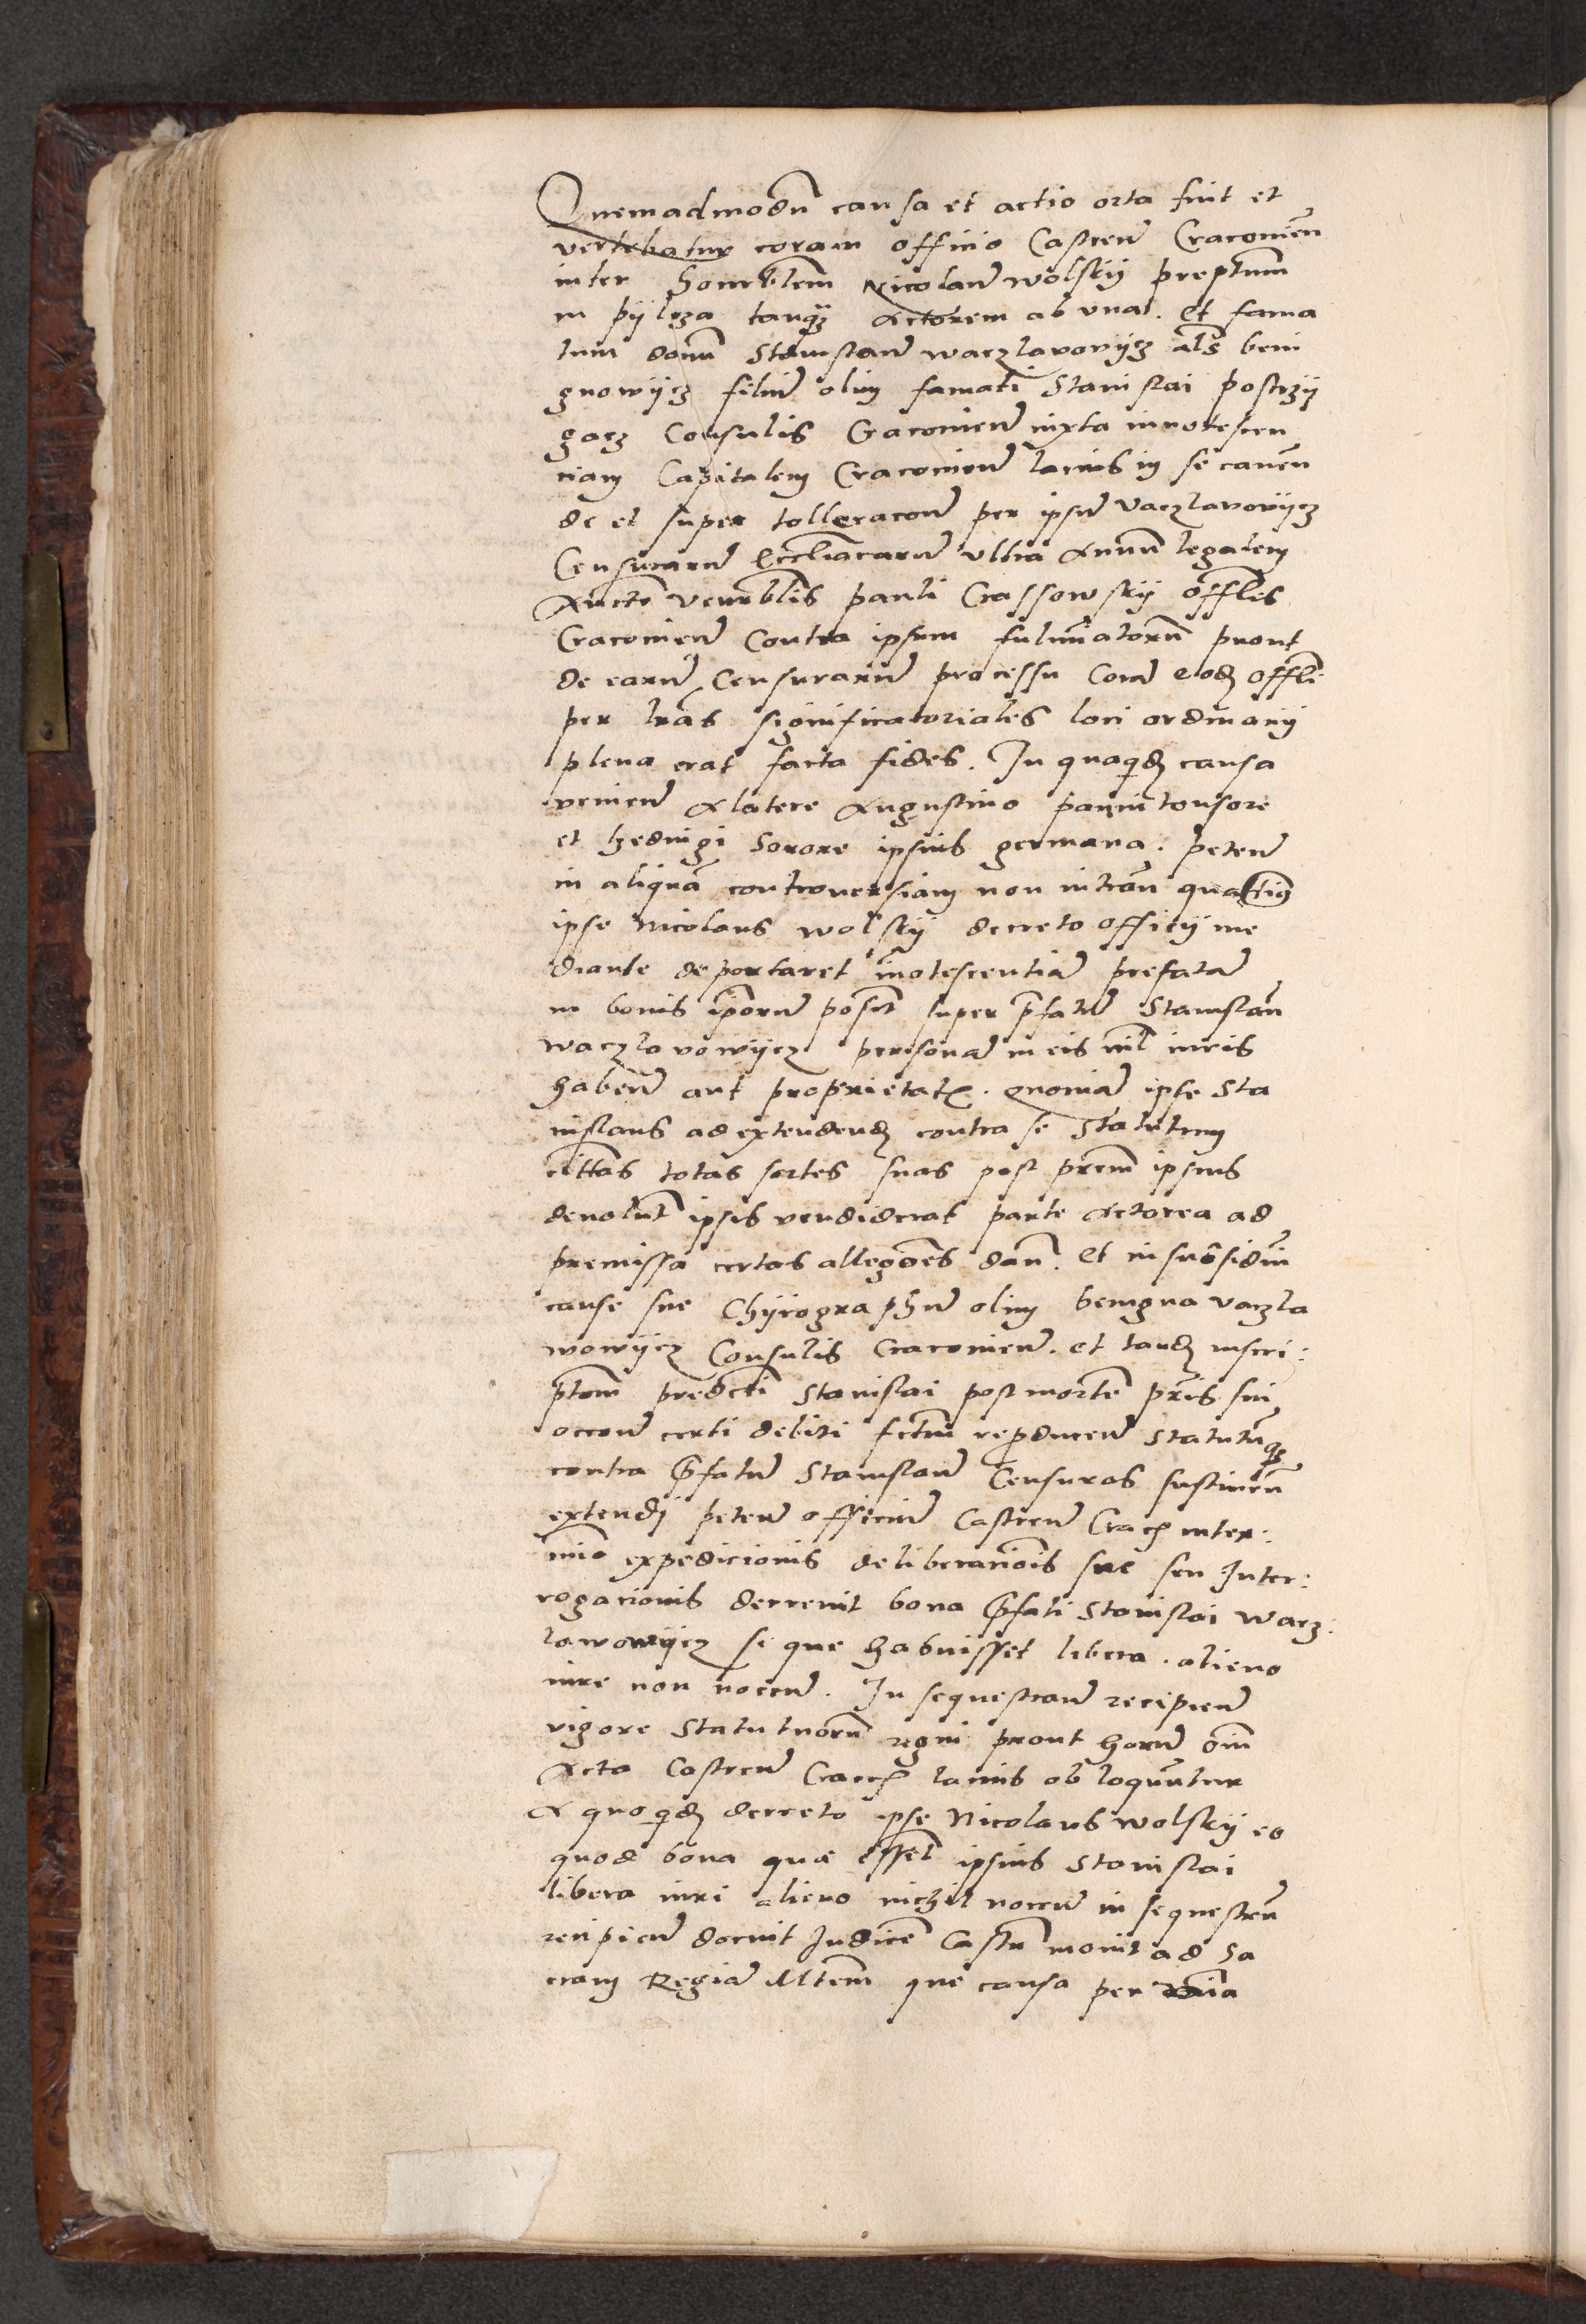 Quemadmodū causa et actio orta fuit et
vertebatur coram officio Castreñ Cracovieñ
inter honorblem Nicolaū wolskij preptum
in pijlcza tanq̄ȝ Actorem ab una. et fama
tum donū Stanislaū waczlavowijcz als beni
gnowijcz filiū olim famati Stanislai postrzij
gacz Consulis Cracovieñ iuxta innotescen
ciam Capitalem Cracovieñ lacius in se canen
de et super tolleracōn per ipsū vaczlavowijcz
Censurarū Eccliacarū ultra Annū legalem
Auctē venerblis pauli Crassowskij offlis
Cracovieñ Contra ipsum fulminatorū prout
de earū Censurarū processu Corā eodȝ offli
per lras significatoriales loci ordinarij
plena erat facta fides. In quaqdȝ causa
venieñ A latere Augustino pannitonsore
et hedvigi Sorore ipsius germana. peteñ
in aliquā controversiam non intrañ
ipse Nicolaus wolskij decreto officij me
diante deportaret innotescentiā prefatā
in bonis ipsorū posit super p̄fatū Stanislaū
waczlavowijcz personā in eis nil iuris
habeñ aut proprietat. quoniā ipse Sta
nislaus ad extendendȝ contra se Statutum
cittas totas sortes suas post prem ipsius
devolut ipsis vendiderat parte Actorea ad
premissa certas allegões dañ. et in subsidiū
cause sue Chijrographū olim benigna vaczla
wowijcz Consulis Cracovieñ. et tandȝ inscri:
ptom predicti Stanislai post mortē pris sui
occōn certi debiti fctm reproduceñ Statutūqȝ
contra p̄fatū Stanislaū Censuras sustineñ
extendi peteñ officiū Castreñ Crac in ter:
mino expedicionis deliberacionis sue seu Inter:
rogacionis decrevit bona p̄fati Stanislai wacz:
lawowijcz si que habuisset libera. alieno
iure non noceñ. In sequestrū recipieñ
vigore Statutuorū regni prout horū oīm
Acta Castreñ Crac lacius obloquūtur
A quoqdȝ decreto ipse Nicolaus wolskij eo
quod bona quæ essēt ipsius Stanislai
libera iuri alieno nichil noceñ in sequestrū
recipieñ docuit Judicē Castrū movit ad Sa
cram Regiā Mtem que causa per